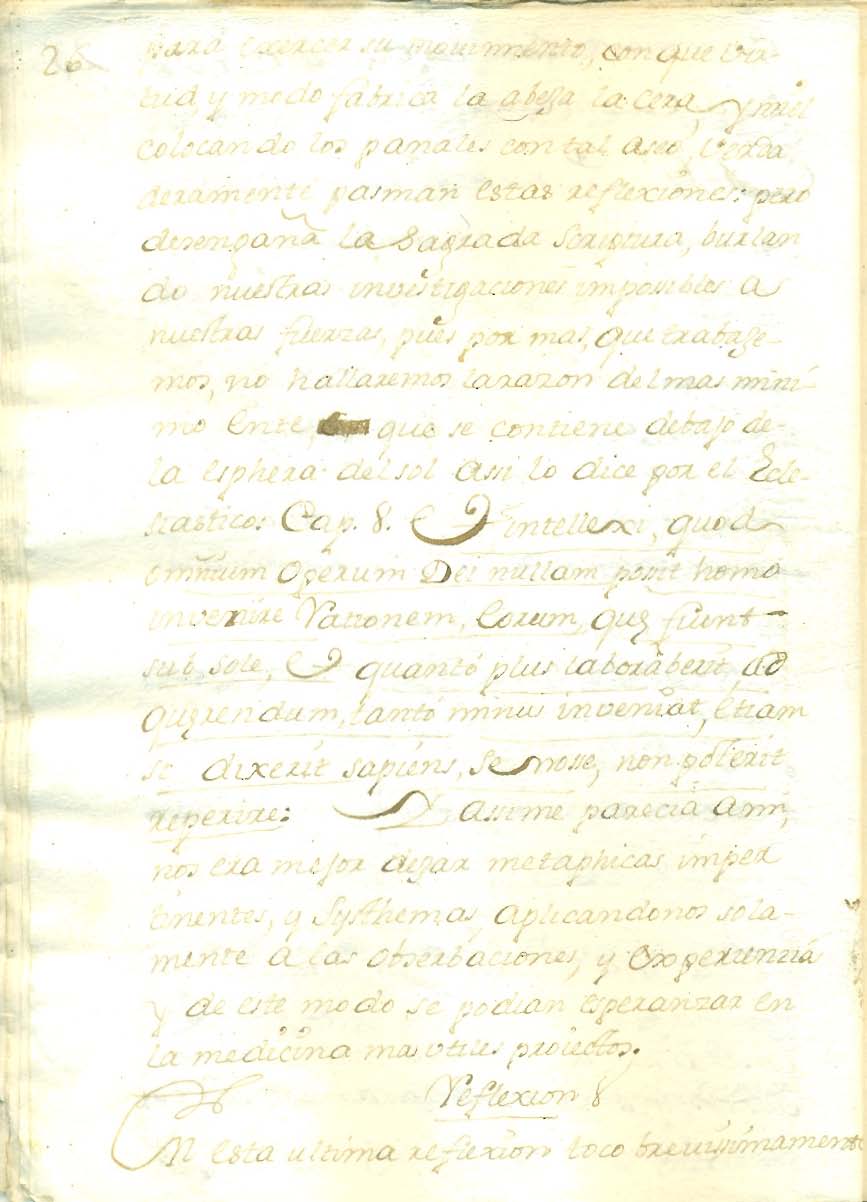 26
para exercer su movimiento, con que vir-
tud, y modo fabrica la abeja la cera, y miel
colocando los panales con tal aseo, verda
deramente pasman estas reflexiones: pero
desengaña la Sagrada Scriptura, burlan
do nuestras investigaciones imposibles a
nuestras fuerzas, pues por mas, que trabaje-
mos, no hallaremos la razon del mas mini-
mo Ente, que se contiene debajo de-
la esphera del sol assi lo dice por el Ecle-
siasticos Cap. 8. Et intellexi, quod
omnium Operum Dei nullam posit homo
invenire Rationem, Eorum, quę fiunt-
sub sole, Et quantó plus laboráberit, ad
quęrendum, tantó minus inveniat, Etiam
si dixerit sapiens, se nosse, non poterit
reperire: Y assi me parecia a mi,
nos era mejor dejar metaphicas imper
tinentes, y Systhemas, aplicandonos sola-
mente a las obserbaciones, y Experiencia
y de este modo se podian esperanzar en
la medicina mas utiles proiectos.
Reflexion 8
En esta ultima reflexion toco brevissimamente